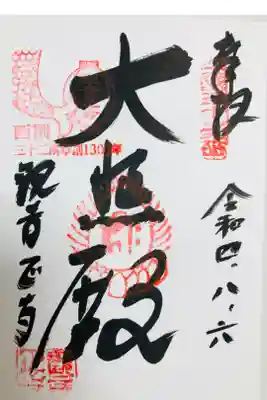 奉拝
令和四、八、六
大悲殿
西国
三十三所草創1300年
観音正寺